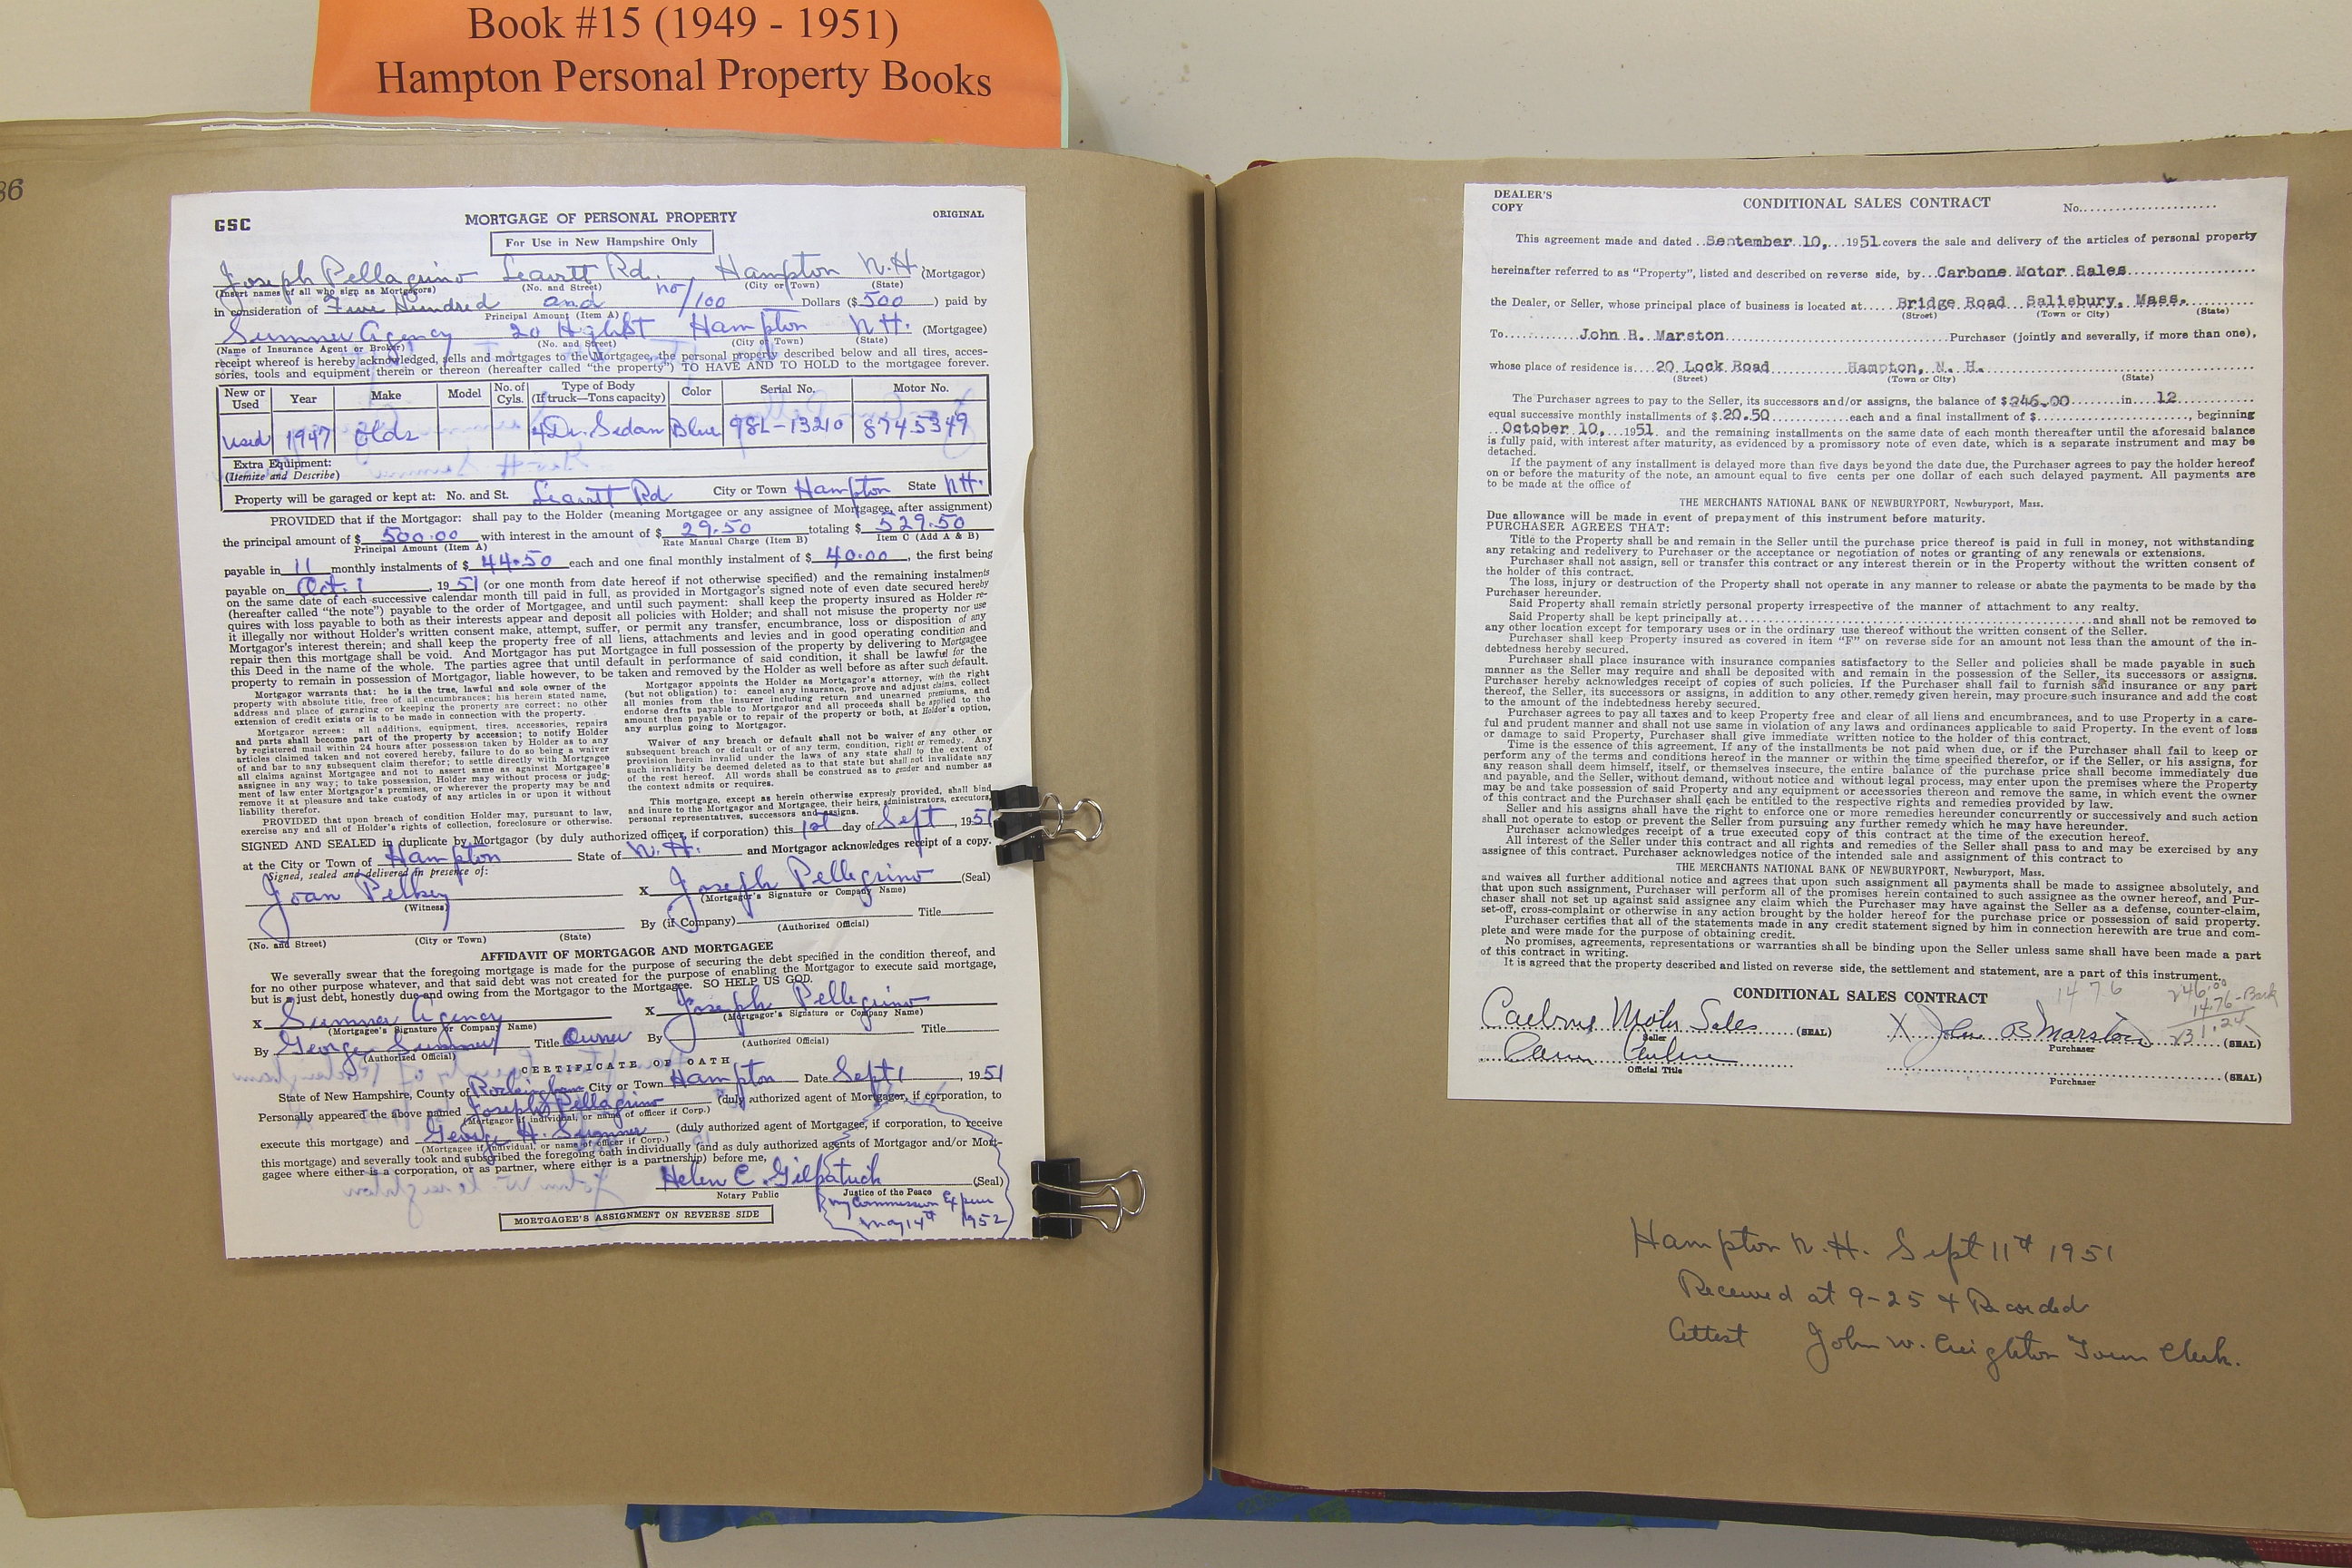 Book #15 (1949 - 1951)
Hampton Personal Property Books
36
GSC
MORTGAGE OF PERSONAL PROPERTY
ORIGINAL
For Use in New Hampshire Only
Joseph Pellagrino Leavitt Rd. Hampton N.H. (Mortgagor)
(Insert names of all who sign as Mortgagors) (No. and Street) (City or Town) (State)
in consideration of Five Hundred and no/100 Dollars ($500) paid by
Principal Amount (Item A)
Sumner Agency 20 High St Hampton N.H. (Mortgagee)
(Name of Insurance Agent or Broker) (No. and Street) (City or Town) (State)
receipt whereof is hereby acknowledged, sells and mortgages to the Mortgagee, the personal property described below and all tires, acces-
sories, tools and equipment therein or thereon (hereafter called "the property") TO HAVE AND TO HOLD to the mortgagee forever.
New or Used Year Make Model No. of Cyls. Type of Body (If truck—Tons capacity) Color Serial No. Motor No.
Used 1947 Olds 4 Dr. Sedan Blue 98L-13210 8745349
Extra Equipment:
(Itemize and Describe)
Property will be garaged or kept at: No. and St. Leavitt Rd City or Town Hampton State N.H.
PROVIDED that if the Mortgagor: shall pay to the Holder (meaning Mortgagee or any assignee of Mortgagee, after assignment)
the principal amount of $ 500.00 with interest in the amount of $ 29.50 totaling $ 529.50
Principal Amount (Item A) Rate Manual Charge (Item B) Item C (Add A & B)
payable in 11 monthly instalments of $ 44.50 each and one final monthly instalment of $ 40.00, the first being
payable on Oct. 1, 1951 (or one month from date hereof if not otherwise specified) and the remaining instalments
on the same date of each successive calendar month till paid in full, as provided in Mortgagor's signed note of even date secured hereby
(hereafter called "the note") payable to the order of Mortgagee, and until such payment: shall keep the property insured as Holder re-
quires with loss payable to both as their interests appear and deposit all policies with Holder; and shall not misuse the property nor use
it illegally nor without Holder's written consent make, attempt, suffer, or permit any transfer, encumbrance, loss or disposition of any
Mortgagor's interest therein; and shall keep the property free of all liens, attachments and levies and in good operating condition and
repair then this mortgage shall be void. And Mortgagor has put Mortgagee in full possession of the property by delivering to Mortgagee
this Deed in the name of the whole. The parties agree that until default in performance of said condition, it shall be lawful for the
property to remain in possession of Mortgagor, liable however, to be taken and removed by the Holder as well before as after such default.
Mortgagor warrants that: he is the true, lawful and sole owner of the
property with absolute title, free of all encumbrances; his herein stated name,
address and place of garaging or keeping the property are correct; no other
extension of credit exists or is to be made in connection with the property.
Mortgagor agrees: all additions, equipment, tires, accessories, repairs
and parts shall become part of the property by accession; to notify Holder
by registered mail within 24 hours after possession taken by Holder as to any
articles claimed taken and not covered hereby, failure to do so being a waiver
of and bar to any subsequent claim therefor; to settle directly with Mortgagee
all claims against Mortgagee and not to assert same as against Mortgagee's
assignee in any way; to take possession, Holder may without process or judg-
ment of law enter Mortgagor's premises, or wherever the property may be and
remove it at pleasure and take custody of any articles in or upon it without
liability therefor.
PROVIDED that upon breach of condition Holder may, pursuant to law,
exercise any and all of Holder's rights of collection, foreclosure or otherwise.
Mortgagor appoints the Holder as Mortgagor's attorney, with the right
(but not obligation) to: cancel any insurance, prove and adjust claims, collect
all monies from the insurer including return and unearned premiums, and
endorse drafts payable to Mortgagor and all proceeds shall be applied to the
amount then payable or to repair of the property or both, at Holder's option,
any surplus going to Mortgagor.
Waiver of any breach or default shall not be waiver of any other or
subsequent breach or default or of any term, condition, right or remedy. Any
provision herein invalid under the laws of any state shall to the extent of
such invalidity be deemed deleted as to that state but shall not invalidate any
of the rest hereof. All words shall be construed as to gender and number as
the context admits or requires.
This mortgage, except as herein otherwise expressly provided, shall bind
and inure to the Mortgagor and Mortgagee, their heirs, administrators, executors,
personal representatives, successors and assigns.
SIGNED AND SEALED in duplicate by Mortgagor (by duly authorized officer, if corporation) this 1st day of Sept, 1951
at the City or Town of Hampton State of N.H. and Mortgagor acknowledges receipt of a copy.
Signed, sealed and delivered in presence of:
Joan Pelkey X Joseph Pellegrino (Seal)
(Witness) (Mortgagor's Signature or Company Name)
By (if Company) Title
(Authorized Official)
(No. and Street) (City or Town) (State)
AFFIDAVIT OF MORTGAGOR AND MORTGAGEE
We severally swear that the foregoing mortgage is made for the purpose of securing the debt specified in the condition thereof, and
for no other purpose whatever, and that said debt was not created for the purpose of enabling the Mortgagor to execute said mortgage,
but is a just debt, honestly due and owing from the Mortgagor to the Mortgagee. SO HELP US GOD.
X Sumner Agency X Joseph Pellegrino
(Mortgagee's Signature or Company Name) (Mortgagor's Signature or Company Name)
By George Sumner Title Owner By Title
(Authorized Official) (Authorized Official)
CERTIFICATE OF OATH
State of New Hampshire, County of Rockingham City or Town Hampton Date Sept 1, 1951
Personally appeared the above named Joseph Pellagrino (duly authorized agent of Mortgagor, if corporation, to
(Mortgagor if individual, or name of officer if Corp.)
execute this mortgage) and George H. Sumner (duly authorized agent of Mortgagee, if corporation, to receive
(Mortgagee if individual, or name of officer if Corp.)
this mortgage) and severally took and subscribed the foregoing oath individually (and as duly authorized agents of Mortgagor and/or Mort-
gagee where either is a corporation, or as partner, where either is a partnership) before me,
Helen C. Gilpatrick (Seal)
Notary Public Justice of the Peace
My Commission Expires
May 14th 1952
MORTGAGEE'S ASSIGNMENT ON REVERSE SIDE
DEALER'S
COPY
CONDITIONAL SALES CONTRACT
No.
This agreement made and dated September 10, 1951 covers the sale and delivery of the articles of personal property
hereinafter referred to as "Property", listed and described on reverse side, by Carbone Motor Sales
the Dealer, or Seller, whose principal place of business is located at Bridge Road Salisbury, Mass.
(Street) (Town or City) (State)
To John R. Marston Purchaser (jointly and severally, if more than one),
whose place of residence is 20 Lock Road Hampton, N. H.
(Street) (Town or City) (State)
The Purchaser agrees to pay to the Seller, its successors and/or assigns, the balance of $246.00 in 12
equal successive monthly installments of $20.50 each and a final installment of $, beginning
October 10, 1951. and the remaining installments on the same date of each month thereafter until the aforesaid balance
is fully paid, with interest after maturity, as evidenced by promissory note of even date, which is a separate instrument and may be
detached.
If the payment of any installment is delayed more than five days beyond the date due, the Purchaser agrees to pay the holder hereof
on or before the maturity of the note, an amount equal to five cents per one dollar of each such delayed payment. All payments are
to be made at the office of
THE MERCHANTS NATIONAL BANK OF NEWBURYPORT, Newburyport, Mass.
Due allowance will be made in event of prepayment of this instrument before maturity.
PURCHASER AGREES THAT:
Title to the Property shall be and remain in the Seller until the purchase price thereof is paid in full in money, not withstanding
any retaking and redelivery to Purchaser or the acceptance or negotiation of notes or granting of any renewals or extensions.
Purchaser shall not assign, sell or transfer this contract or any interest therein or in the Property without the written consent of
the holder of this contract.
The loss, injury or destruction of the Property shall not operate in any manner to release or abate the payments to be made by the
Purchaser hereunder.
Said Property shall remain strictly personal property irrespective of the manner of attachment to any realty.
Said Property shall be kept principally at and shall not be removed to
any other location except for temporary uses or in the ordinary use thereof without the written consent of the Seller.
Purchaser shall keep Property insured as covered in item "F" on reverse side for an amount not less than the amount of the in-
debtedness hereby secured.
Purchaser shall place insurance with insurance companies satisfactory to the Seller and policies shall be made payable in such
manner as the Seller may require and shall be deposited with and remain in the possession of the Seller, its successors or assigns.
Purchaser hereby acknowledges receipt of copies of such policies. If the Purchaser shall fail to furnish said insurance or any part
thereof, the Seller, its successors or assigns, in addition to any other remedy given herein, may procure such insurance and add the cost
to the amount of the indebtedness hereby secured.
Purchaser agrees to pay all taxes and to keep Property free and clear of all liens and encumbrances, and to use Property in a care-
ful and prudent manner and shall not use same in violation of any laws and ordinances applicable to said Property. In the event of loss
or damage to said Property, Purchaser shall give immediate written notice to the holder of this contract.
Time is the essence of this agreement. If any of the installments be not paid when due, or if the Purchaser shall fail to keep or
perform any of the terms and conditions hereof in the manner or within the time specified therefor, or if the Seller, or his assigns, for
any reason shall deem himself, itself, or themselves insecure, the entire balance of the purchase price shall become immediately due
and payable, and the Seller, without demand, without notice and without legal process, may enter upon the premises where the Property
may be and take possession of said Property and any equipment or accessories thereon and remove the same, in which event the owner
of this contract and the Purchaser shall each be entitled to the respective rights and remedies provided by law.
Seller and his assigns shall have the right to enforce one or more remedies hereunder concurrently or successively and such action
shall not operate to estop or prevent the Seller from pursuing any further remedy which he may have hereunder.
Purchaser acknowledges receipt of a true executed copy of this contract at the time of the execution hereof.
All interest of the Seller under this contract and all rights and remedies of the Seller shall pass to and may be exercised by any
assignee of this contract. Purchaser acknowledges notice of the intended sale and assignment of this contract to
THE MERCHANTS NATIONAL BANK OF NEWBURYPORT, Newburyport, Mass.
and waives all further additional notice and agrees that upon such assignment all payments shall be made to assignee absolutely, and
that upon such assignment, Purchaser will perform all of the promises herein contained to such assignee as the owner hereof, and Pur-
chaser shall not set up against said assignee any claim which the Purchaser may have against the Seller as a defense, counter-claim,
set-off, cross-complaint or otherwise in any action brought by the holder hereof for the purchase price or possession of said property.
Purchaser certifies that all of the statements made in any credit statement signed by him in connection herewith are true and com-
plete and were made for the purpose of obtaining credit.
No promises, agreements, representations or warranties shall be binding upon the Seller unless same shall have been made a part
of this contract in writing.
It is agreed that the property described and listed on reverse side, the settlement and statement, are a part of this instrument.
CONDITIONAL SALES CONTRACT
1476
246.00
14.76 - Bank
231.24
Carbone Motor Sales (SEAL) X John B Marston (SEAL)
Seller Purchaser
Official Title
(SEAL)
Purchaser
Hampton N.H. Sept 11th 1951
Received at 9-25 & Recorded
Attest John W. Creighton Town Clerk.